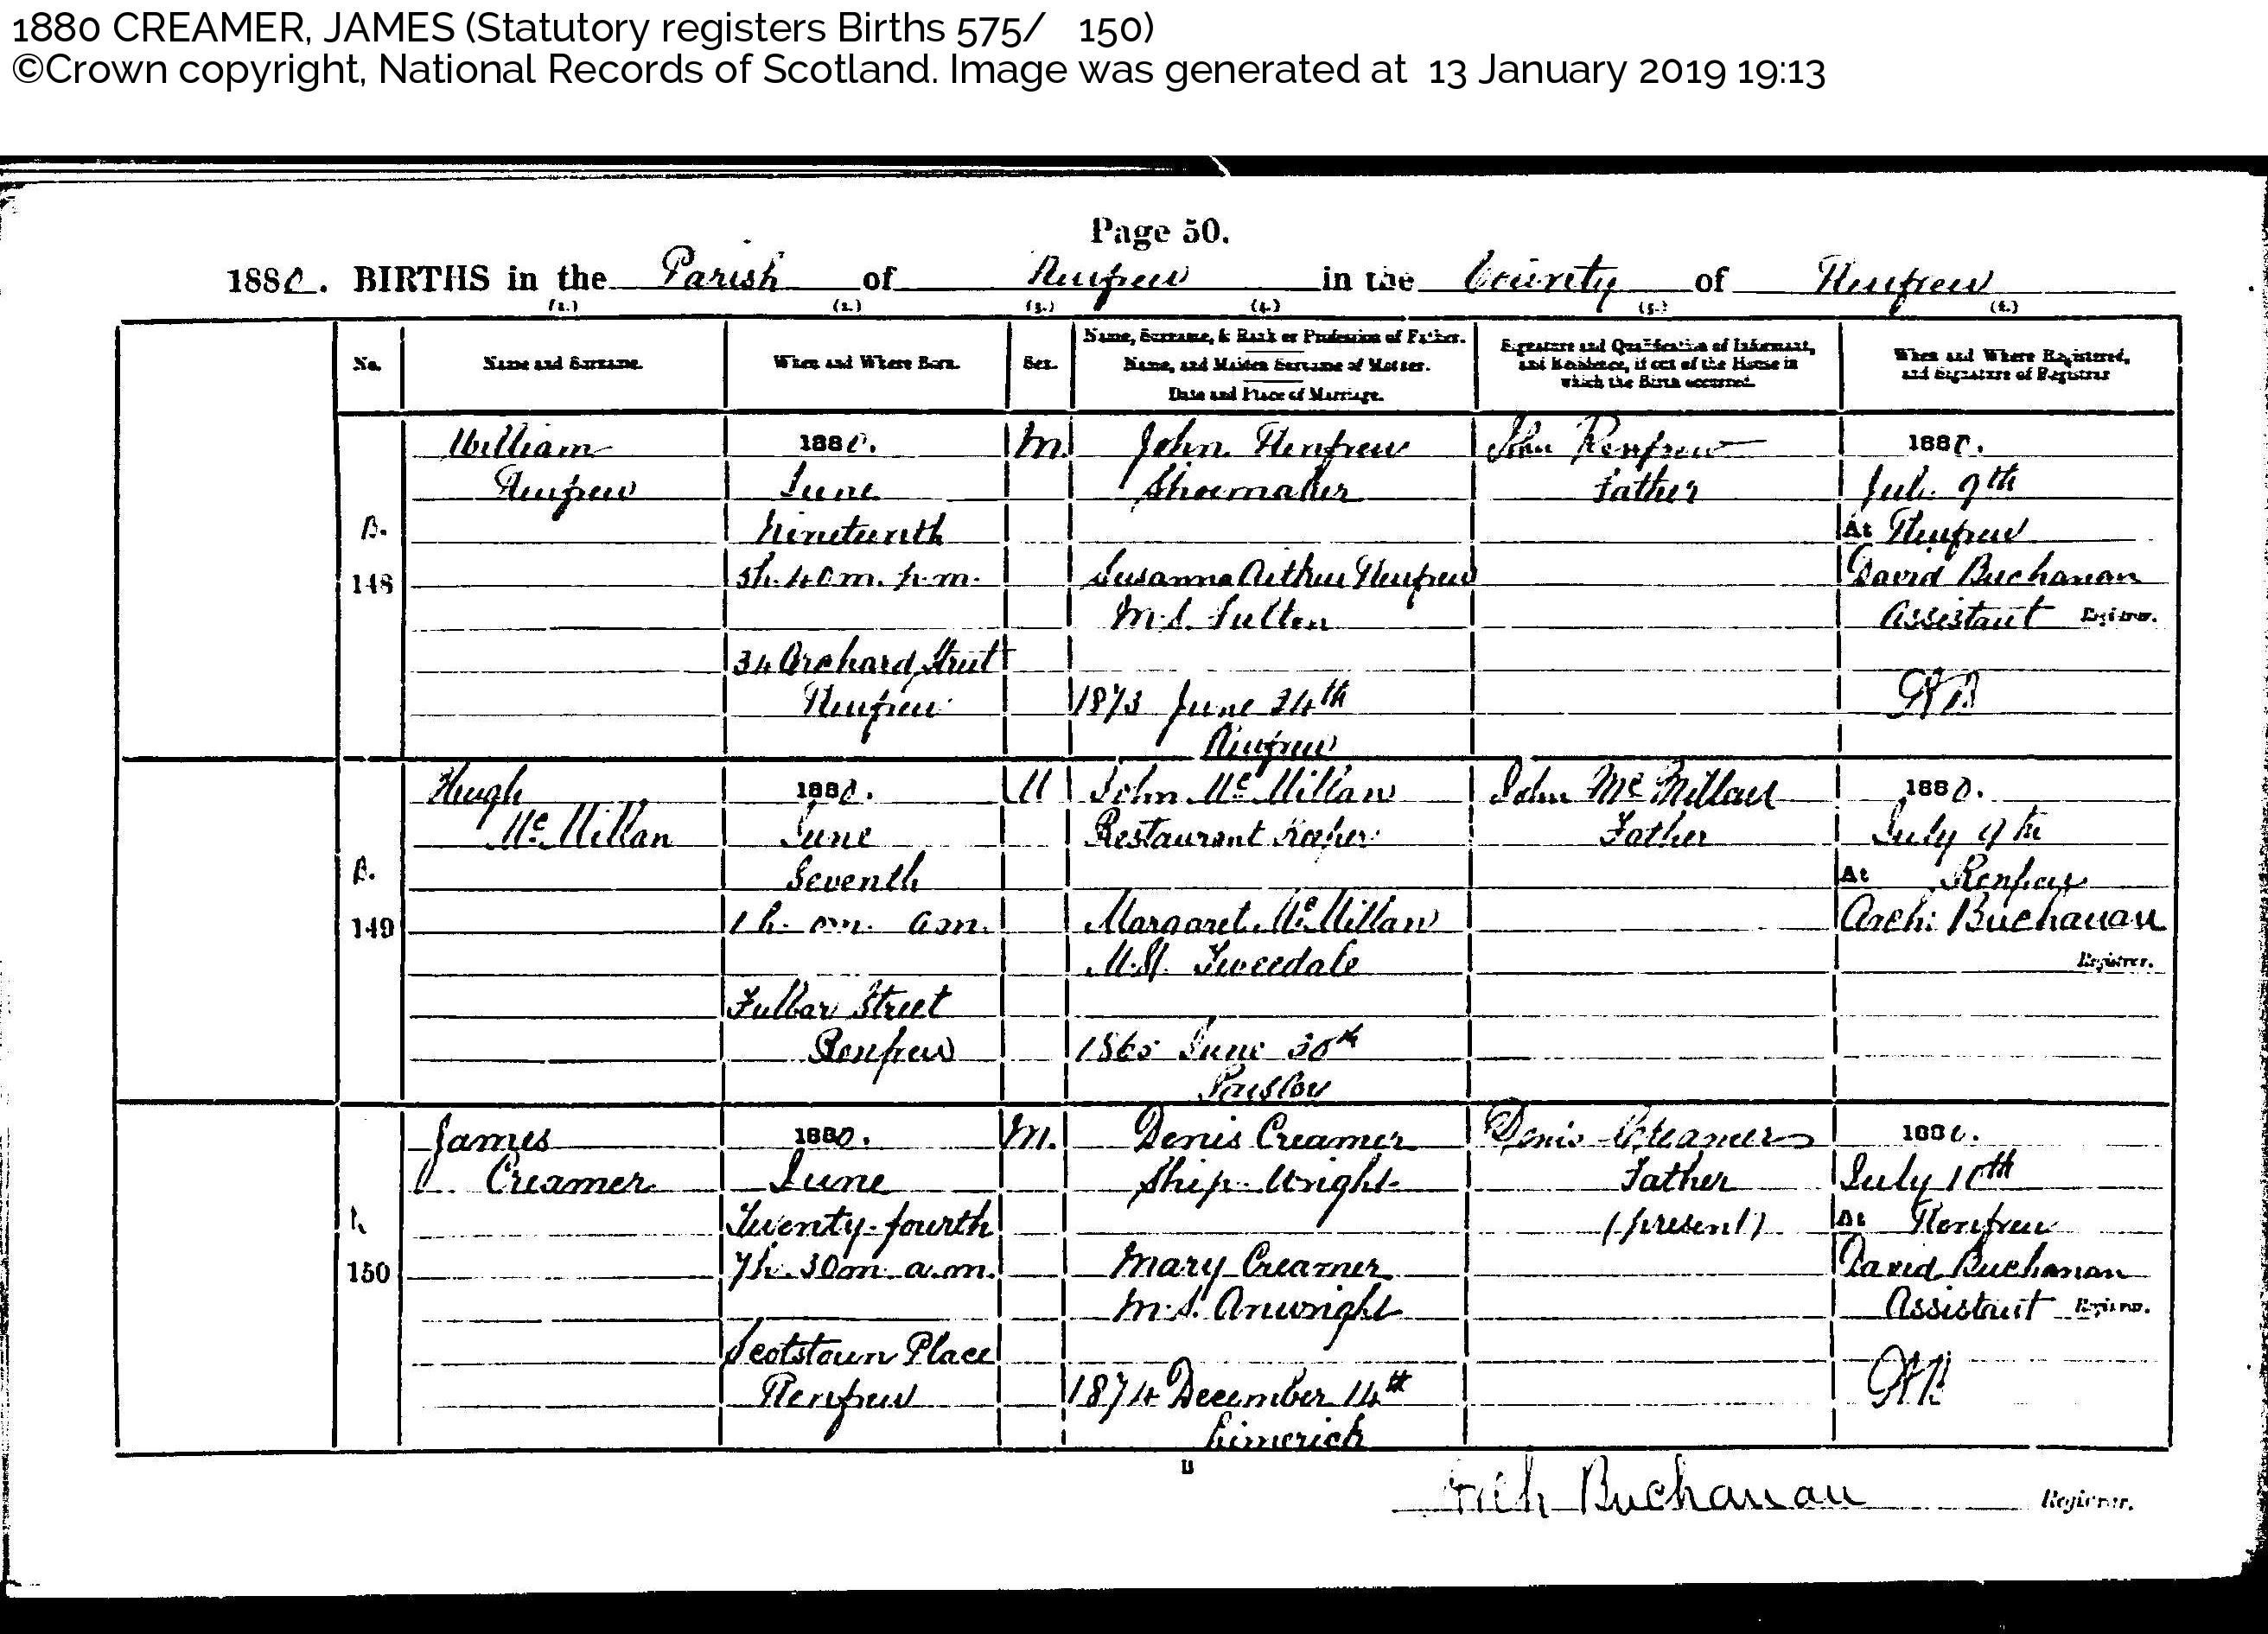 1880 CREAMER, JAMES (Statutory registers Births 575/ 150)
©Crown copyright, National Records of Scotland. Image was generated at 13 January 2019 19:13
Page 50.
1880. BIRTHS in the Parish of Renfrew in the County of Renfrew
(1.) (2.) (3.) (4.) (5.) (6.)
No.
Name and Surname.
When and Where Born.
Sex.
Name, Surname, & Rank or Profession of Father.
Name, and Maiden Surname of Mother.
Date and Place of Marriage.
Signature and Qualification of Informant,
and Residence, if out of the House in
which the Birth occurred.
When and Where Registered,
and Signature of Registrar
148
William
Renfrew
1880.
June
Nineteenth
5h. 40m. p.m.
34 Orchard Street
Renfrew
M.
John Renfrew
Shoemaker
Susanna Arthur Renfrew
M.S. Fulton
1873 June 24th
Renfrew
John Renfrew
Father
1880.
July 9th
At Renfrew
David Buchanan
Assistant Registrar.
149
Hugh
McMillan
1880.
June
Seventh
1h. 0m. a.m.
Fulbar Street
Renfrew
M
John McMillan
Restaurant Keeper
Margaret McMillan
M.S. Tweedale
1865 June 30th
Paisley
John McMillan
Father
1880.
July 9th
At Renfrew
Arch: Buchanan
Registrar.
150
James
Creamer
1880.
June
Twenty-fourth
7h. 30m. a.m.
Scotstoun Place
Renfrew
M.
Denis Creamer
Ship-Wright
Mary Creamer
M.S. Anwright
1874 December 14th
Limerick
Denis Creamer
Father
(present)
1880.
July 10th
At Renfrew
David Buchanan
Assistant Registrar.
Arch Buchanan Registrar.